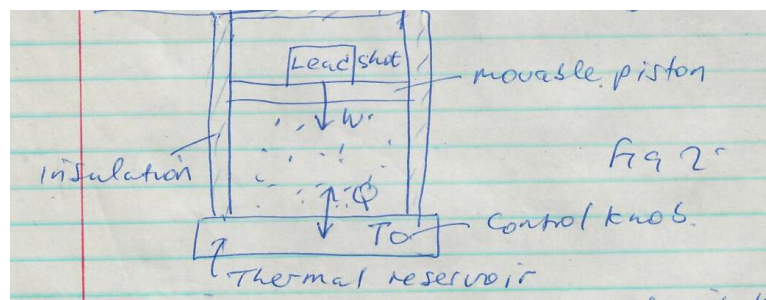 Lead shot
movable piston
W
insulation
Fig 2
Q
To
Control knob.
Thermal reservoir